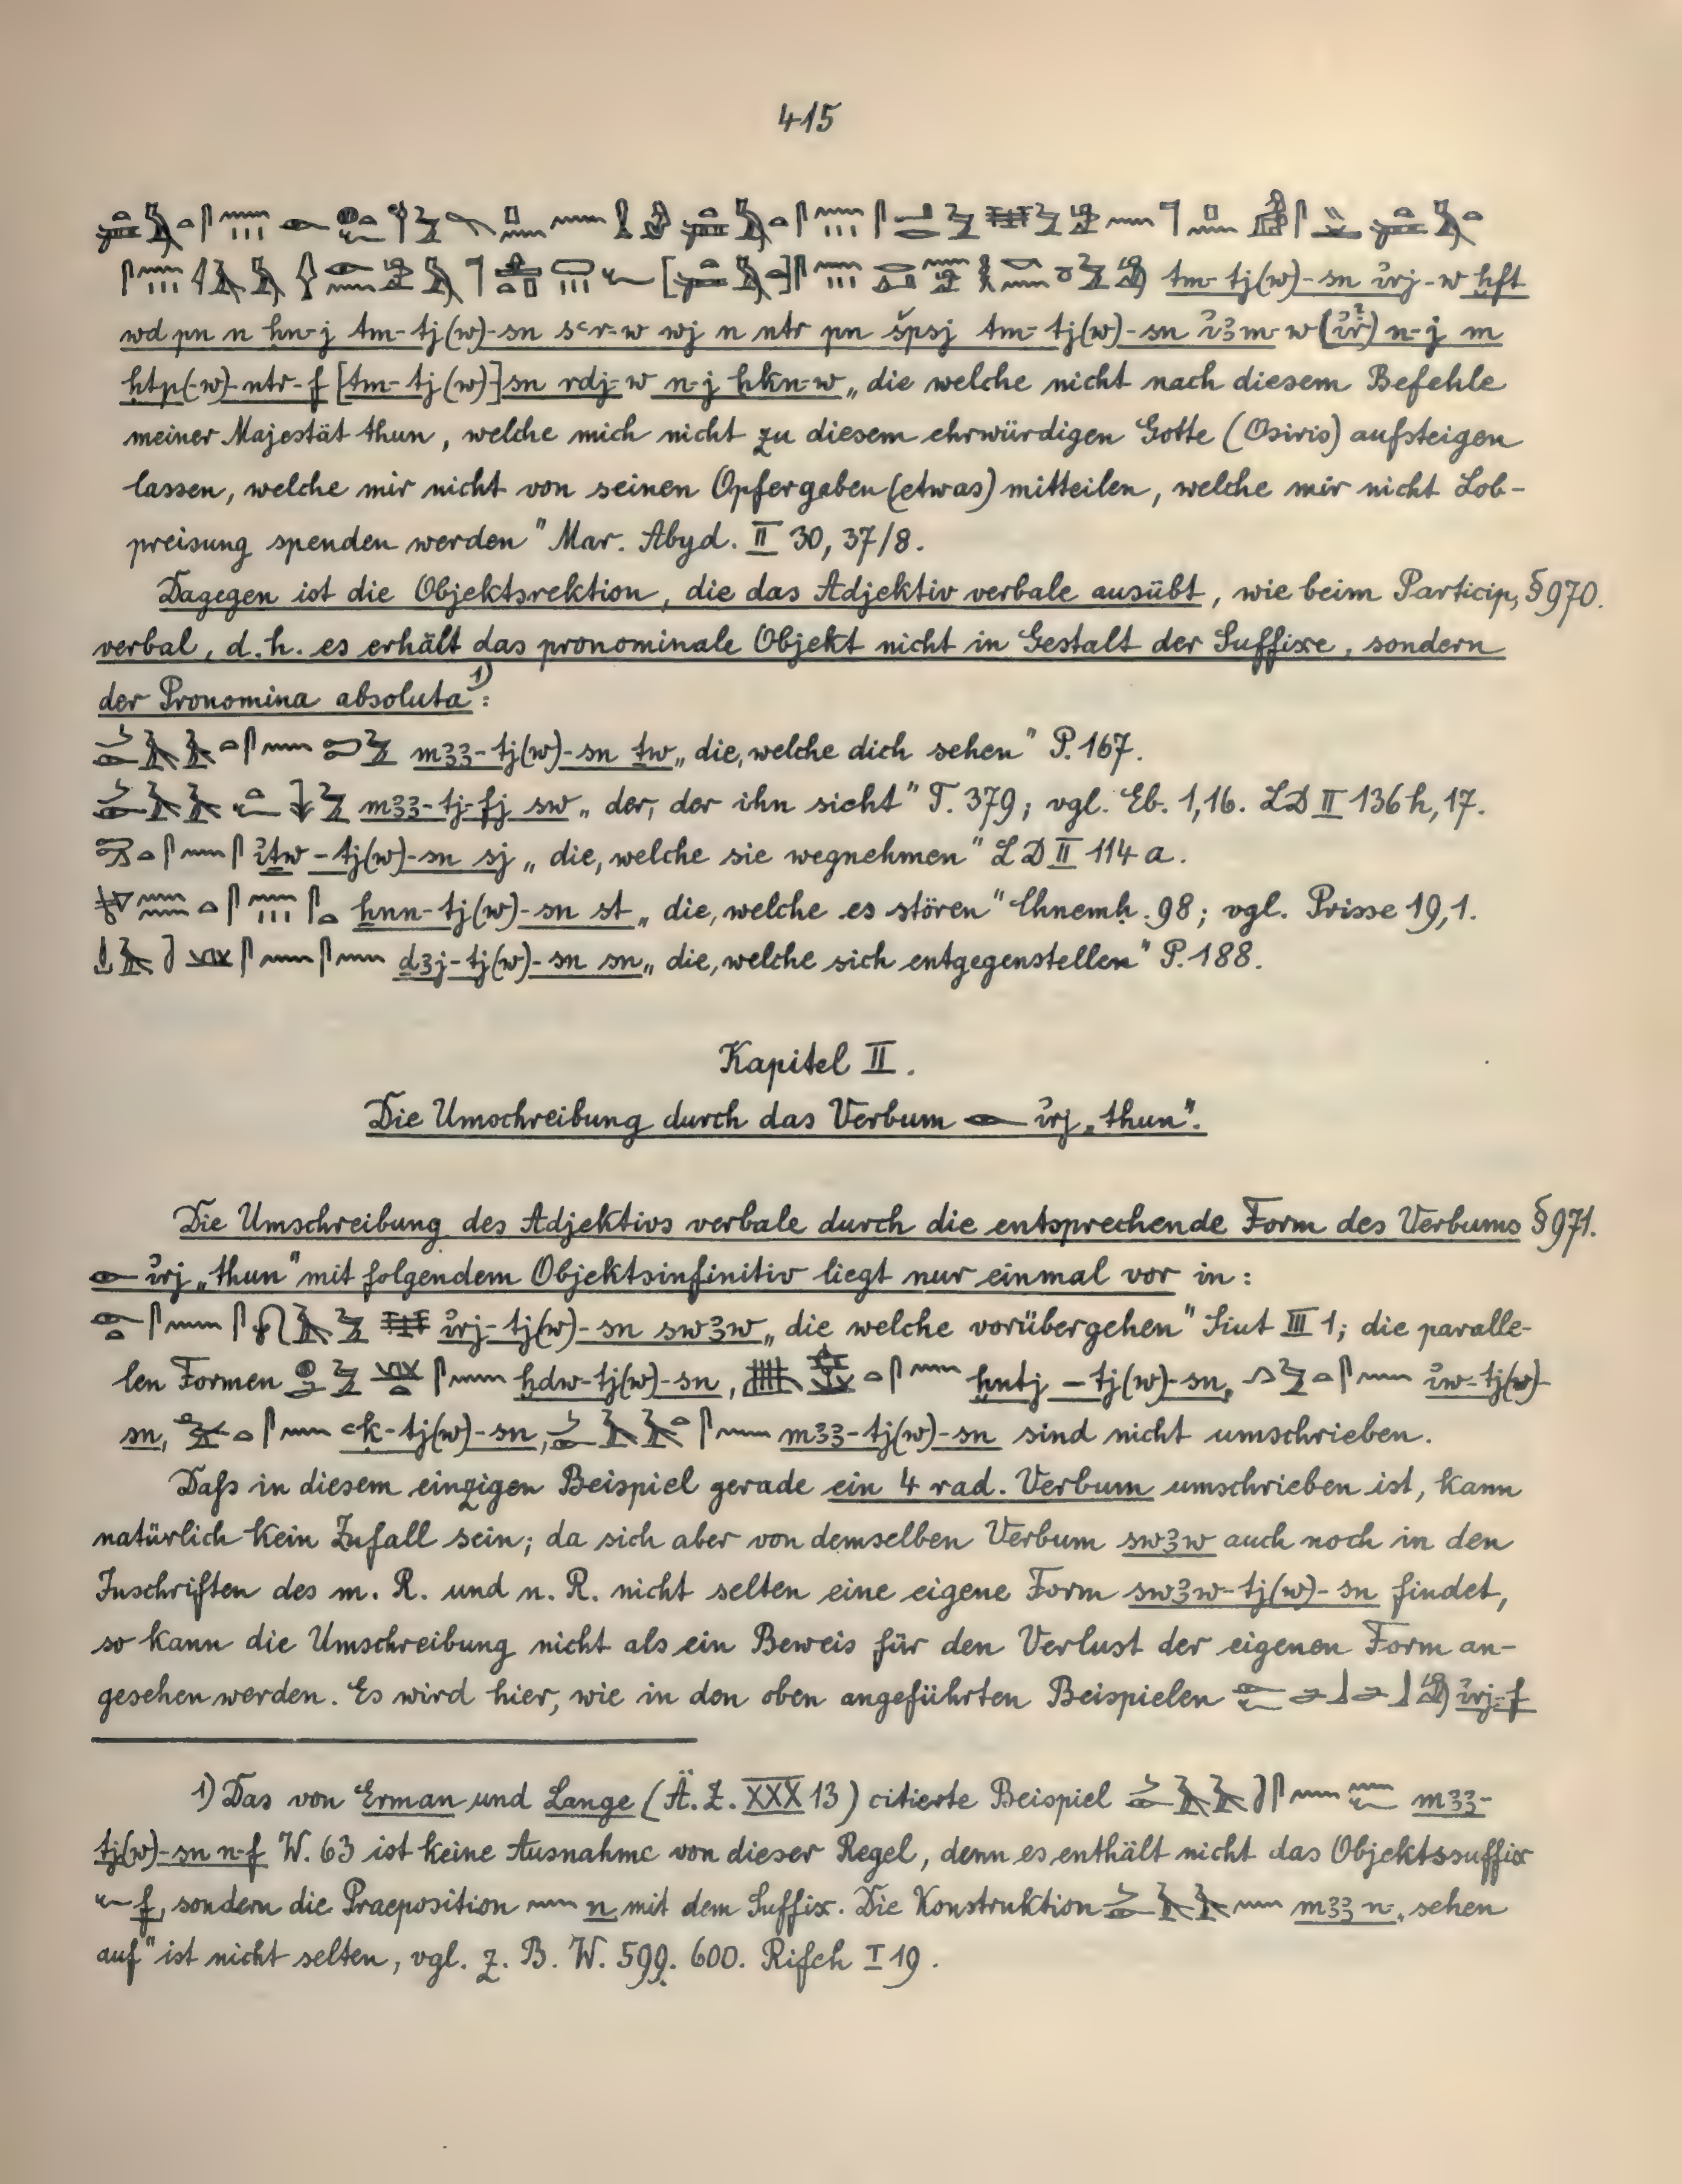 415
tm-tj(w)-sn ỉrj-w ḫft
wd pn n ḥn-j tm-tj(w)-sn sꜥr-w wj n ntr pn špsj tm-tj(w)-sn ỉꜣm-w (ỉr?) n-j m
ḥtp(-w)-ntr-f [tm-tj(w)]sn rdj-w n-j ḥkn-w „die welche nicht nach diesem Befehle
meiner Majestät thun, welche mich nicht zu diesem ehrwürdigen Gotte (Osiris) aufsteigen
lassen, welche mir nicht von seinen Opfergaben (etwas) mitteilen, welche mir nicht Lob-
preisung spenden werden" Mar. Abyd. II 30, 37/8.
Dagegen ist die Objektsrektion, die das Adjektiv verbale ausübt, wie beim Particip, §970.
verbal, d.h. es erhält das pronominale Objekt nicht in Gestalt der Suffixe, sondern
der Pronomina absoluta 1):
mꜣꜣ-tj(w)-sn ṯw „die, welche dich sehen" P. 167.
mꜣꜣ-tj-fj sw „der, der ihn sieht" T. 379; vgl. Eb. 1,16. LD II 136 h, 17.
ỉṯw-tj(w)-sn sj „die, welche sie wegnehmen" LD II 114 a.
ẖnn-tj(w)-sn st „die, welche es stören" Chnemḥ. 98; vgl. Prisse 19,1.
ḏꜣj-tj(w)-sn sn „die, welche sich entgegenstellen" P. 188.
Kapitel II.
Die Umschreibung durch das Verbum 𓁹 ỉrj „thun".
Die Umschreibung des Adjektivs verbale durch die entsprechende Form des Verbums §971.
𓁹 ỉrj „thun" mit folgendem Objektsinfinitiv liegt nur einmal vor in:
ỉrj-tj(w)-sn swꜣw „die welche vorübergehen" Siut III 1; die paralle-
len Formen ḫdw-tj(w)-sn, ḫntj-tj(w)-sn, ỉw-tj(w)-
sn, ꜥk-tj(w)-sn, mꜣꜣ-tj(w)-sn sind nicht umschrieben.
Daß in diesem einzigen Beispiel gerade ein 4 rad. Verbum umschrieben ist, kann
natürlich kein Zufall sein; da sich aber von demselben Verbum swꜣw auch noch in den
Inschriften des m. R. und n. R. nicht selten eine eigene Form swꜣw-tj(w)-sn findet,
so kann die Umschreibung nicht als ein Beweis für den Verlust der eigenen Form an-
gesehen werden. Es wird hier, wie in den oben angeführten Beispielen ỉrj-f
1) Das von Erman und Lange (Ä. Z. XXX 13) citierte Beispiel mꜣꜣ-
tj(w)-sn n-f W. 63 ist keine Ausnahme von dieser Regel, denn es enthält nicht das Objektssuffix
𓆑 f, sondern die Praeposition 𓈖 n mit dem Suffix. Die Konstruktion mꜣꜣ n „sehen
auf" ist nicht selten, vgl. z. B. W. 599. 600. Rifeh I 19.